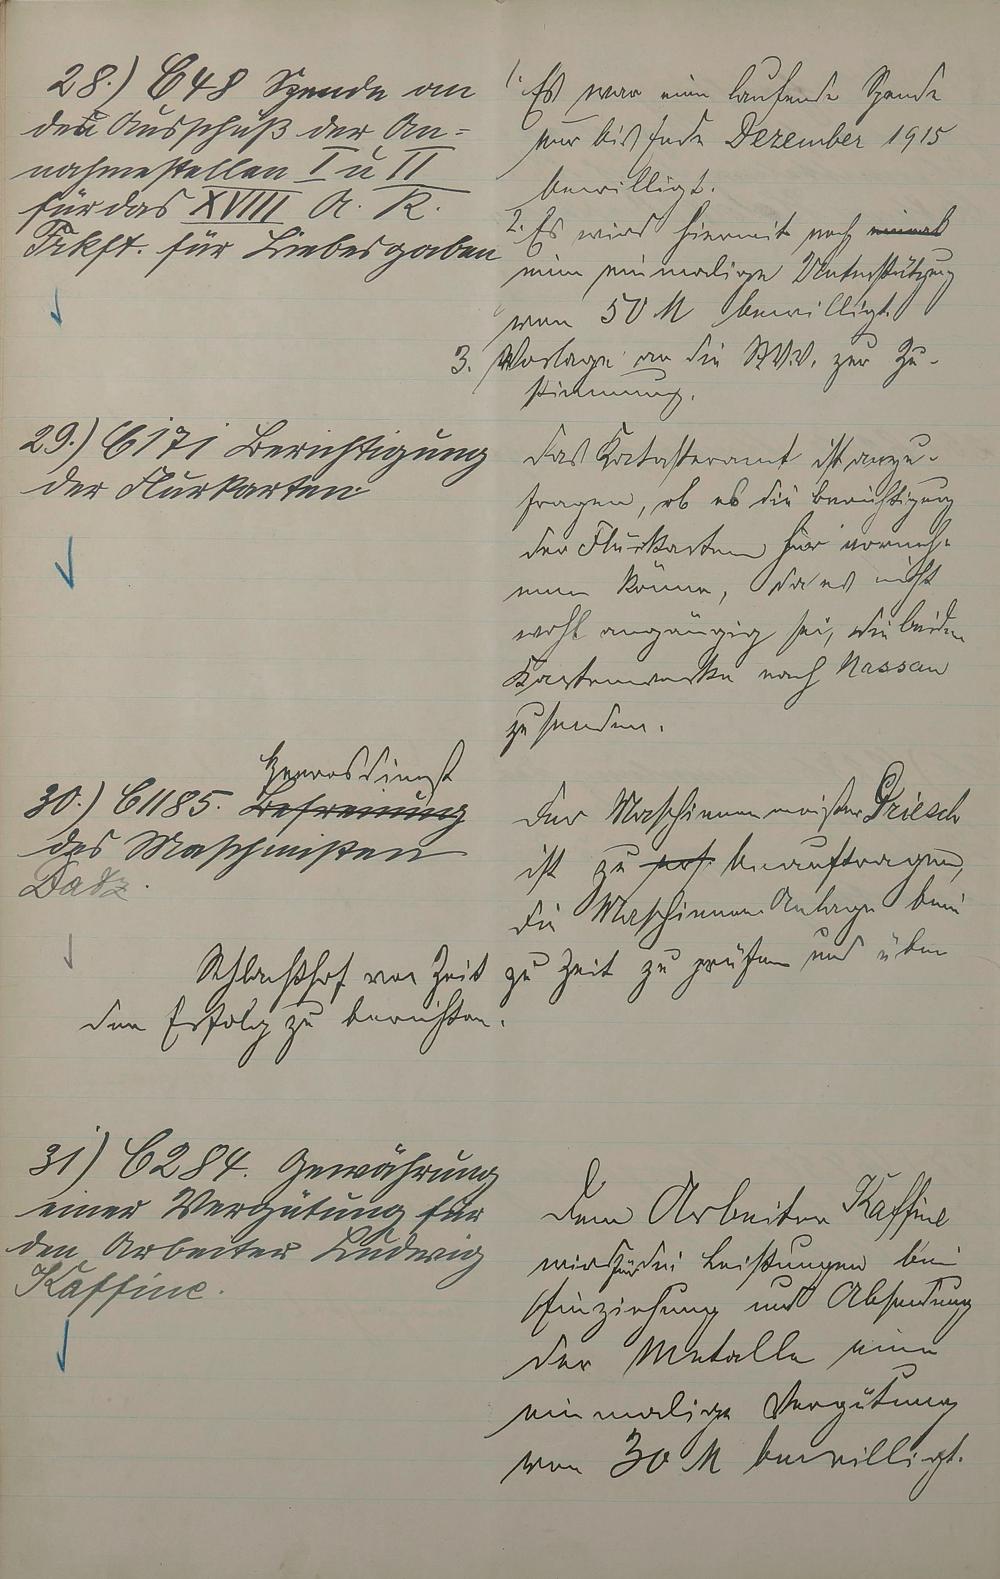 28.) C 48 Spende an
den Ausschuß der An=
nahmestellen I u II
für das XVIII A. K.
Frkft. für Liebesgaben
1. Es war eine laufende Spende
nur bis Ende Dezember 1915
bewilligt.
2. Es wird hiermit noch einmal
eine einmalige Unterstützung
von 50 M bewilligt
3. Vorlage an die St.V.V. zur Zu-
stimmung.
29.) C 171 Berichtigung
der Flurkarten
Das Katasteramt ist anzu-
fragen, ob es die Berichtigung
der Flurkarten hier vorneh-
men könne, da es nicht
wohl angängig sei, die beiden
Kartenwerke nach Nassau
zu senden.
30.) C 1185. Befreiung
des Maschinisten
Datz.
Der Maschinenmeister Griesch
ist zu beauftragen,
die Maschinen Anlage beim
Schlachthof von Zeit zu Zeit zu prüfen und über
den Erfolg zu berichten.
31) C 284. Gewährung
einer Vergütung für
den Arbeiter Ludwig
Kaffine.
Dem Arbeiter Kaffine
wird für die Leistungen bei
Einziehung und Absendung
der Metalle eine
einmalige Vergütung
von 30 M bewilligt.